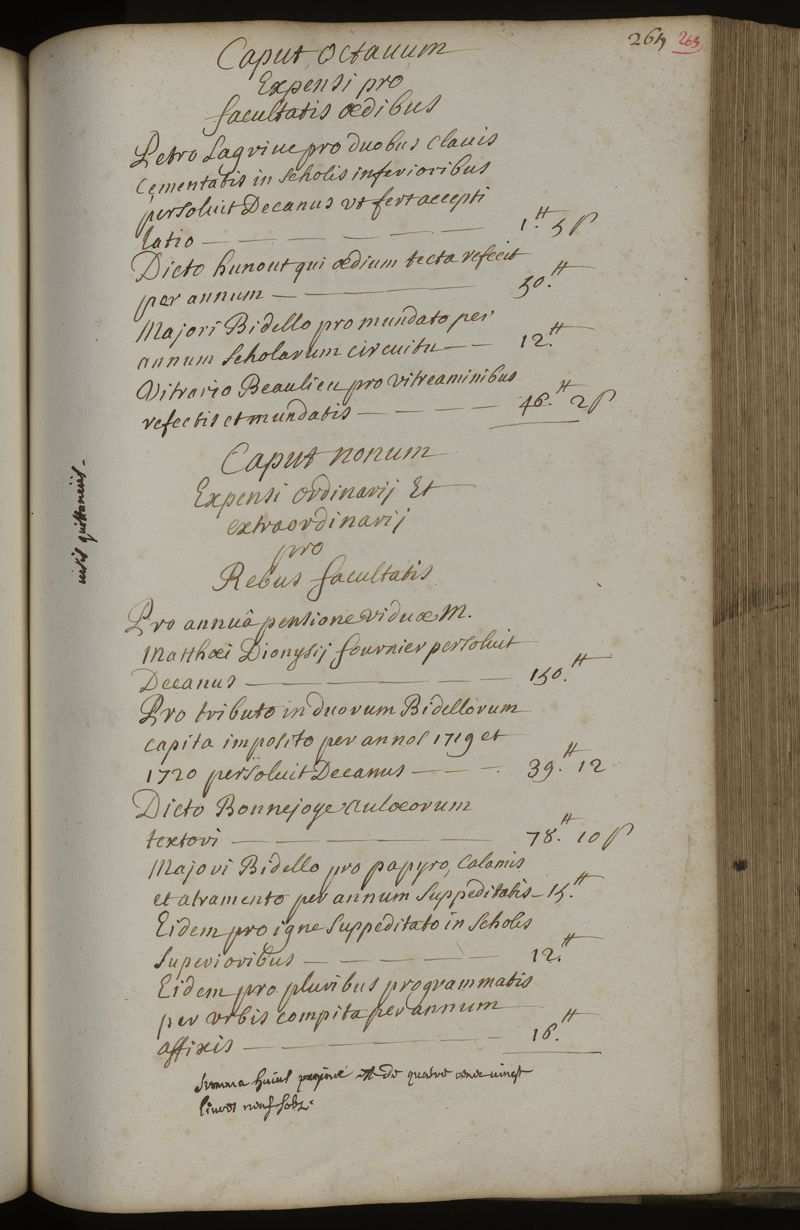 264 265
Caput octauum
Expensi pro
facultatis œdibus
Petro Lagriue pro duobus clauis
cementatis in scholis inferioribus
persoluit Decanus vt fert accepti
latio — 1.tt 5 ß
Dicto hunout qui œdium tecta refecit
per annum — 50.tt
Majori Bidello pro mundato per
annum scholarum circuitu — 12.tt
Vitrario Beaulieu pro vitreaminibus
refectis et mundatis — 46.tt 2 ß
Caput nonum
Expensi ordinarij Et
extraordinarij
pro
Rebus facultatis
visis quittanciis.
Pro annuâ pensione viduœ M.
Matthœi Dionysij fournier persoluit
Decanus — 150.tt
Pro tributo in duorum Bidellorum
capita imposito per annos 1719 et
1720 persoluit Decanus — 39.tt 12
Dicto Bonnejoye aulœorum
textori — 78.tt 10 ß
Majori Bidello pro papyro, calamis
et atramento per annum suppeditatis — 15.tt
Eidem pro igne suppeditato in scholis
superioribus — 12.tt
Eidem pro pluribus programmatis
per vrbis compita per annum
affixis — 16.tt
Summa huius paginœ est de quatre cents vingt
livres neuf sols.